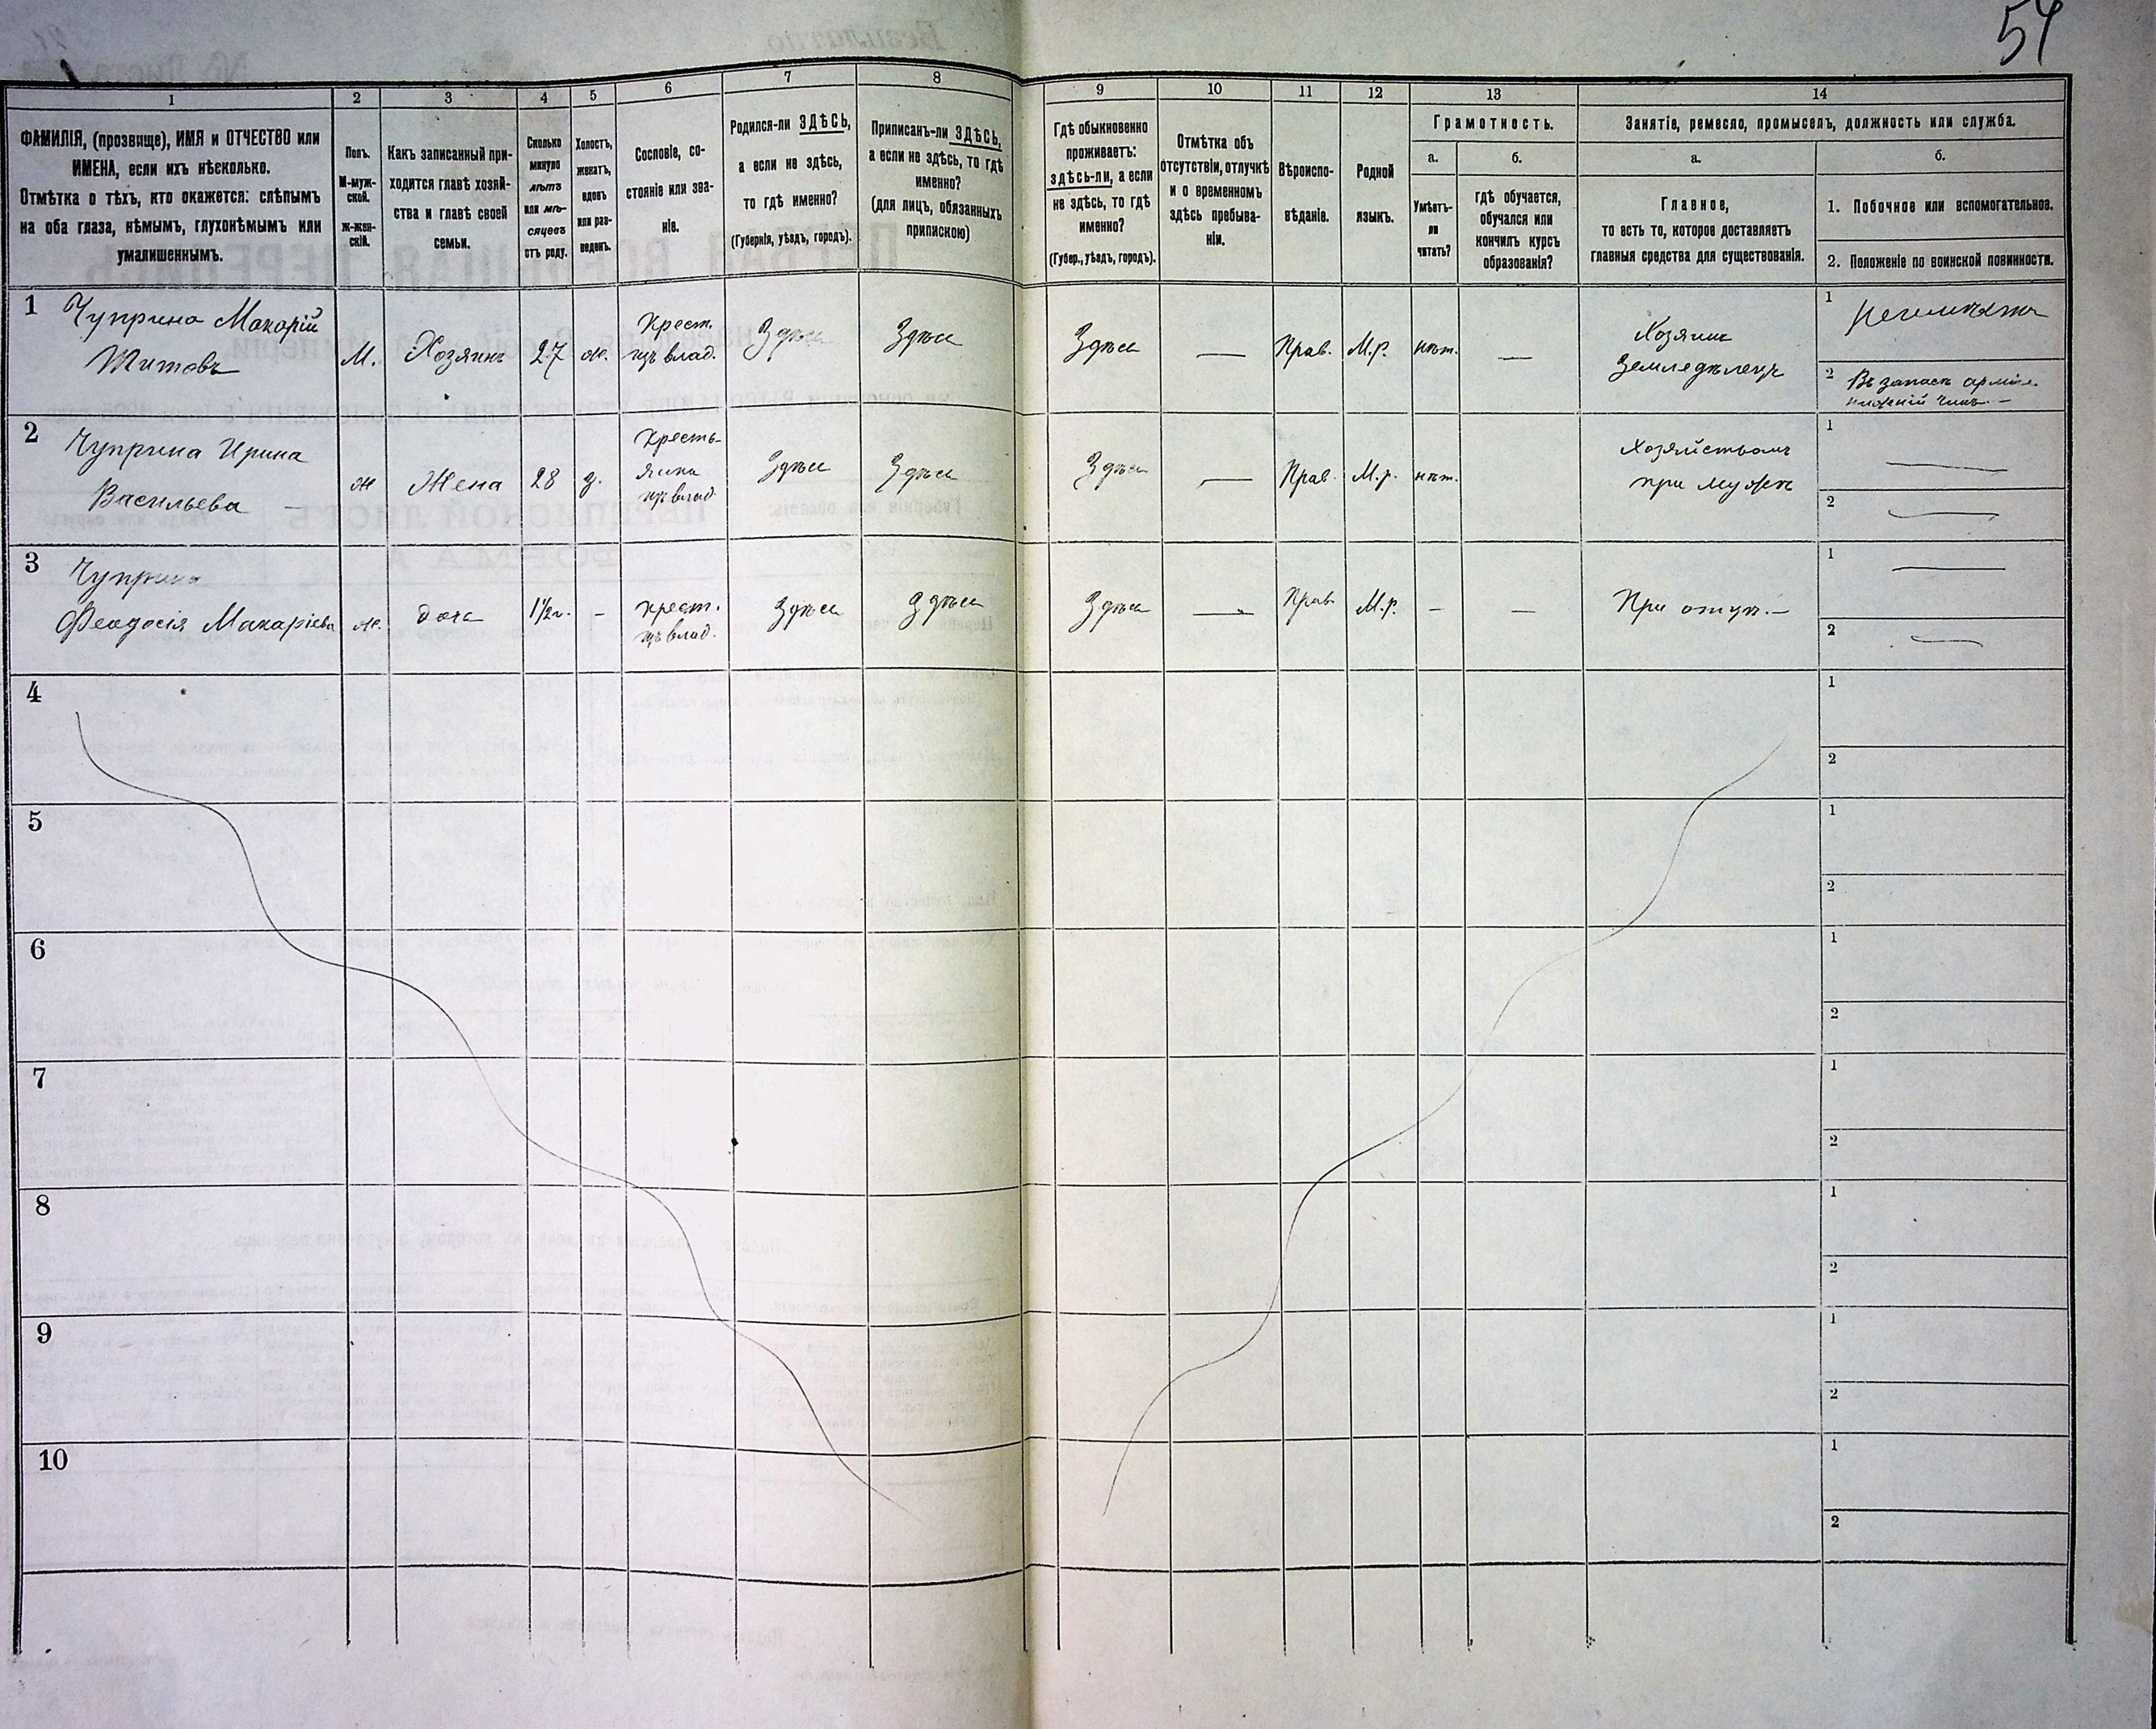 54
1
2
3
4
5
6
7
8
9
10
11
12
13
14
ФАМИЛІЯ, (прозвище), ИМЯ и ОТЧЕСТВО или
ИМЕНА, если ихъ нѣсколько.
Отмѣтка о тѣхъ, кто окажется: слѣпымъ
на оба глаза, нѣмымъ, глухонѣмымъ или
умалишеннымъ.
Полъ.
М-муж-
ской.
ж-жен-
скій.
Какъ записанный при-
ходится главѣ хозяй-
ства и главѣ своей
семьи.
Сколько
минуло
лѣтъ
или мѣ-
сяцевъ
отъ роду.
Холостъ,
женатъ,
вдовъ
или раз-
веденъ.
Сословіе, со-
стояніе или зва-
ніе.
Родился-ли ЗДѢСЬ,
а если не здѣсь,
то гдѣ именно?
(Губернія, уѣздъ, городъ).
Приписанъ-ли ЗДѢСЬ,
а если не здѣсь, то гдѣ
именно?
(для лицъ, обязанныхъ
припискою)
Гдѣ обыкновенно
проживаетъ:
здѣсь-ли, а если
не здѣсь, то гдѣ
именно?
(Губер., уѣздъ, городъ).
Отмѣтка объ
отсутствіи, отлучкѣ
и о временномъ
здѣсь пребыва-
ніи.
Вѣроиспо-
вѣданіе.
Родной
языкъ.
Грамотность.
а.
Умѣетъ-
ли
читать?
б.
гдѣ обучается,
обучался или
кончилъ курсъ
образованія?
Занятіе, ремесло, промыселъ, должность или служба.
а.
Главное,
то есть то, которое доставляетъ
главныя средства для существованія.
б.
1. Побочное или вспомогательное.
2. Положеніе по воинской повинности.
1
Чуприна Макарій
Титовъ
М.
Хозяинъ
27
ж.
Крест.
изъ влад.
Здѣсь
Здѣсь
Здѣсь
—
Прав.
М.р.
нѣт.
—
Хозяинъ
Земледѣлецъ
1
2 Въ запасѣ арміи.
нижній чинъ. —
2
Чуприна Ирина
Васильева —
ж
Жена
28
з.
Кресть-
янка
изъ влад.
Здѣсь
Здѣсь
Здѣсь
—
Прав.
М.р.
нѣт.
Хозяйствомъ
при мужѣ
1 —
2 —
3
Чуприна
Феодосія Макаріева
ж.
дочь
1½г.
-
крест.
изъ влад.
Здѣсь
Здѣсь
Здѣсь
—
Прав.
М.р.
-
—
При отцѣ. —
1 —
2 —
4
1
2
5
1
2
6
1
2
7
1
2
8
1
2
9
1
2
10
1
2